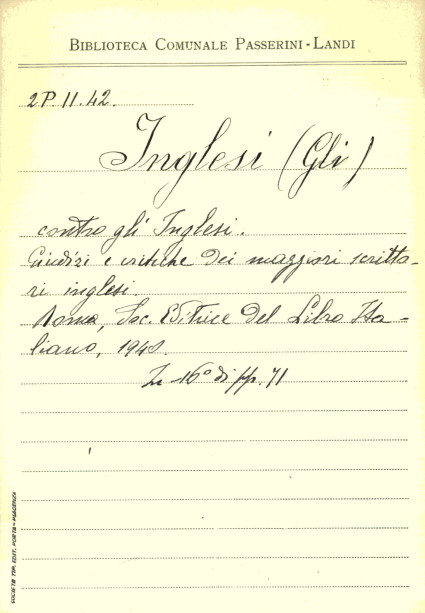 BIBLIOTECA COMUNALE PASSERINI-LANDI
2P 11.42.
Inglesi (Gli)
contro gli Inglesi.
Giudizi e critiche dei maggiori scritto-
ri inglesi.
Roma, Soc. Editrice del Libro Ita-
liano, 1940.
In 16° di pp. 71
SOCIETÀ TIP. EDIT. PORTA - PIACENZA